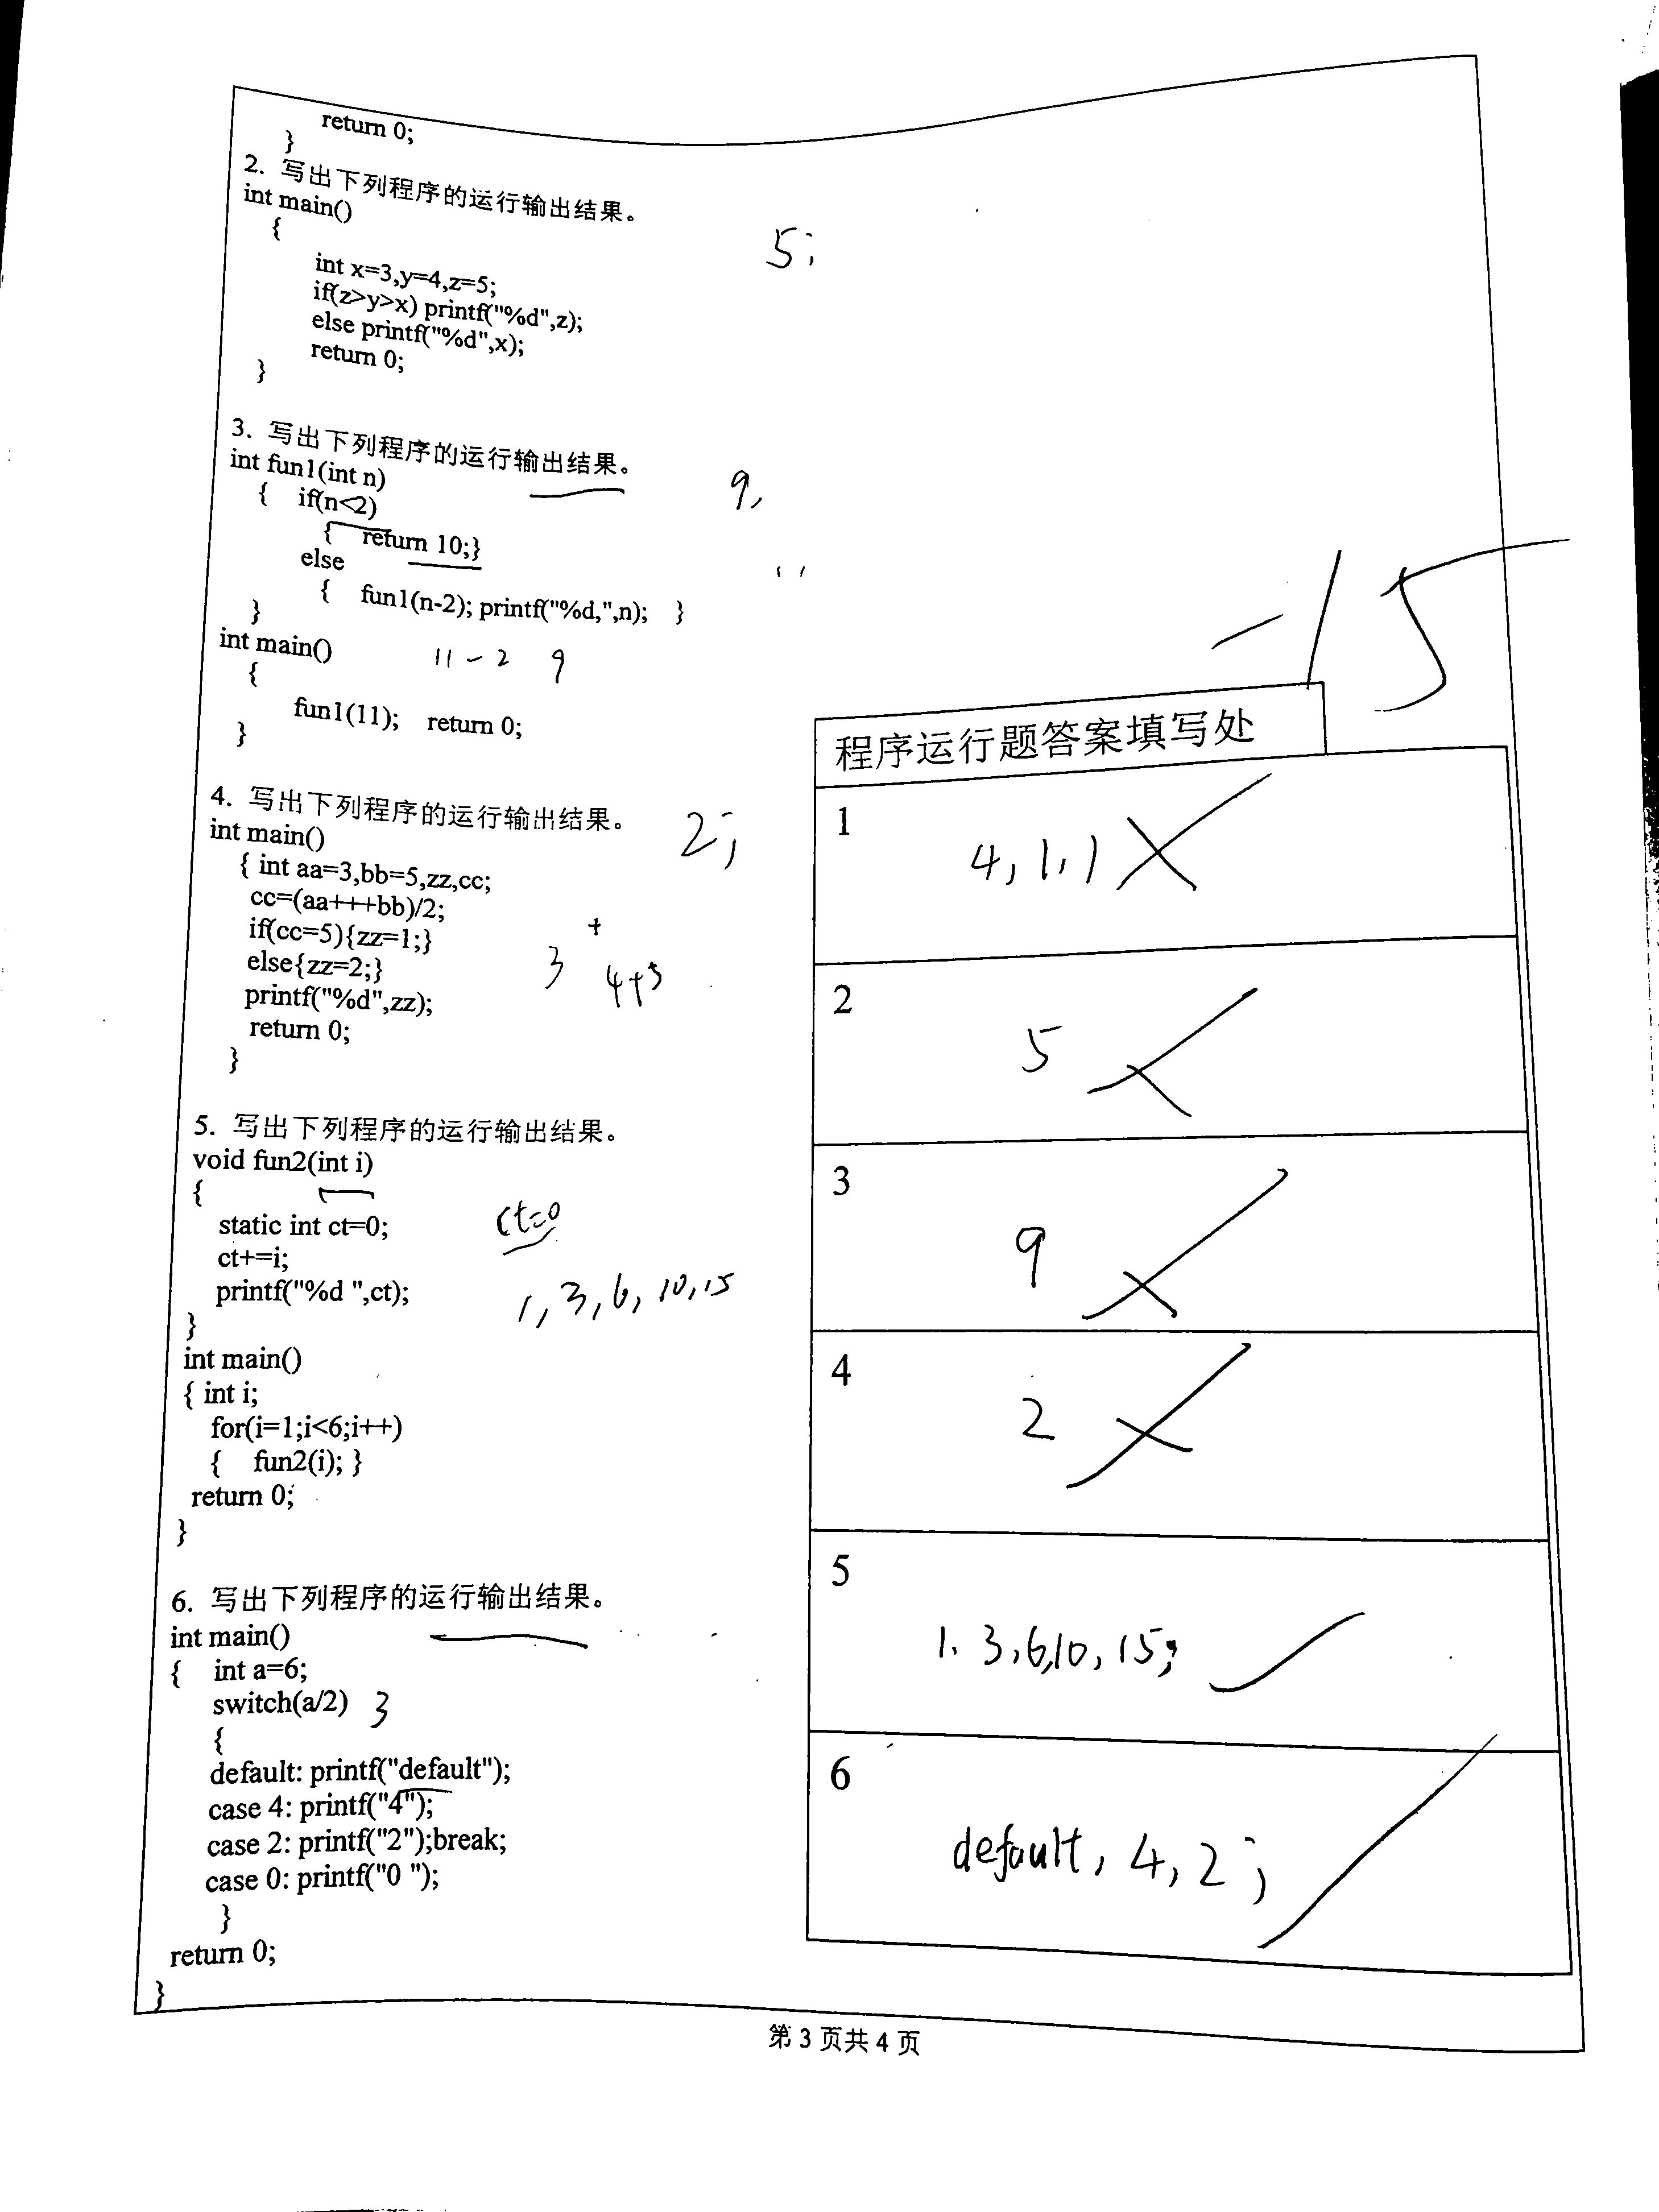 return 0;
}
2. 写出下列程序的运行输出结果。
int main()
{
5;
int x=3,y=4,z=5;
if(z>y>x) printf("%d",z);
else printf("%d",x);
return 0;
}
3. 写出下列程序的运行输出结果。
int fun1(int n)
9,
{ if(n<2)
{ return 10;}
else
{ fun1(n-2); printf("%d,",n); }
}
int main()
11-2 9
{
fun1(11); return 0;
}
4. 写出下列程序的运行输出结果。
2;
int main()
{ int aa=3,bb=5,zz,cc;
cc=(aa+++bb)/2;
if(cc=5){zz=1;}
else{zz=2;}
3 + 4+5
printf("%d",zz);
return 0;
}
5. 写出下列程序的运行输出结果。
void fun2(int i)
{
static int ct=0;
ct=0
ct+=i;
printf("%d ",ct);
1,3,6,10,15
}
int main()
{ int i;
for(i=1;i<6;i++)
{ fun2(i); }
return 0;
}
6. 写出下列程序的运行输出结果。
int main()
{ int a=6;
switch(a/2)
3
{
default: printf("default");
case 4: printf("4");
case 2: printf("2");break;
case 0: printf("0 ");
}
return 0;
}
-15
程序运行题答案填写处
1
4,1,1
2
5
3
9
4
2
5
1.3,6,10,15;
6
default,4,2;
第 3 页共 4 页